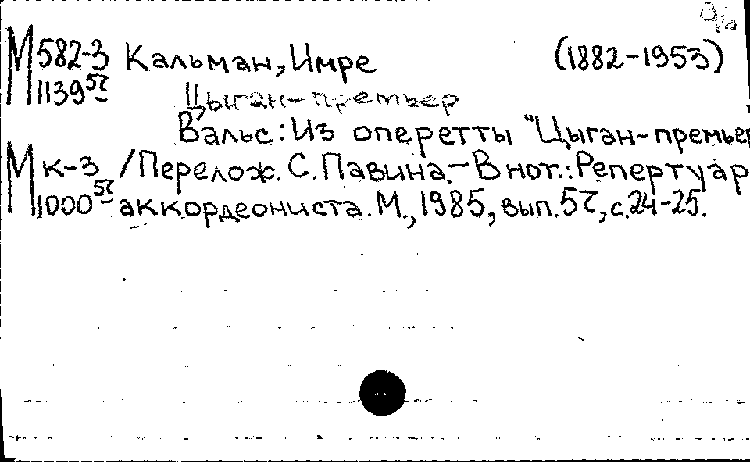 М 582-3 Кальман, Имре (1882-1953)
1139 57 Цыган-премьер
Вальс: Из оперетты "Цыган-премьер
М к-3 /Перелож. С. Павина.-В нот.: Репертуар
1000 57 аккордеониста. М., 1985, вып. 57, с. 24-25.